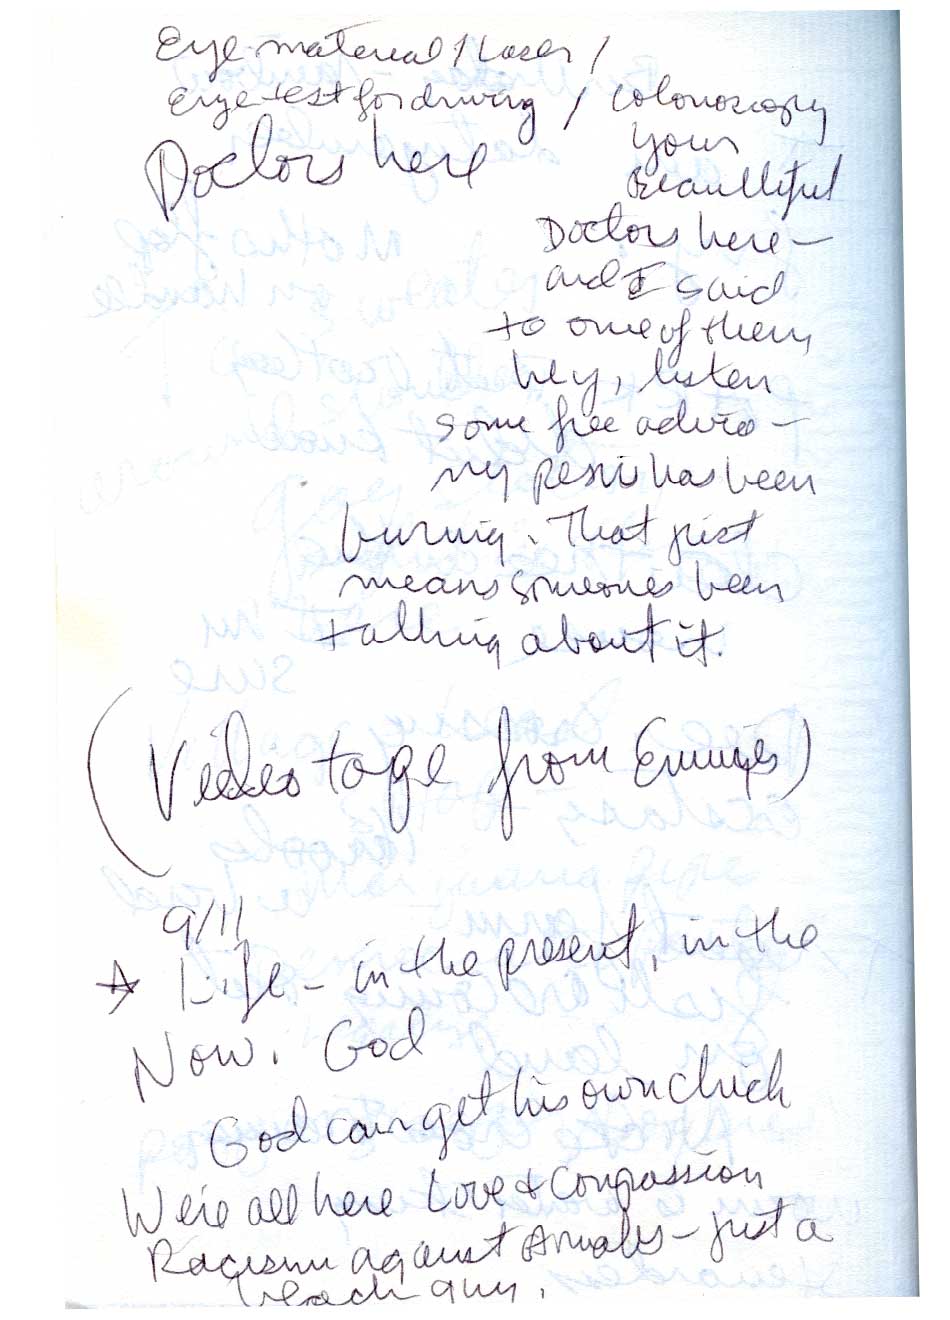 Eye material / Laser /
eye test for driving / Colonoscopy
Doctors here
Your
Beautiful
Doctors here –
and I said
to one of them,
hey, listen
some free advice –
my penis has been
burning. That just
means someones been
talking about it.
(Videotape from Emmys)
9/11
☆ Life – in the present, in the
Now. God
God can get his own chick
We're all here Love & Compassion
Racism against Arabs – just a
beach guy.